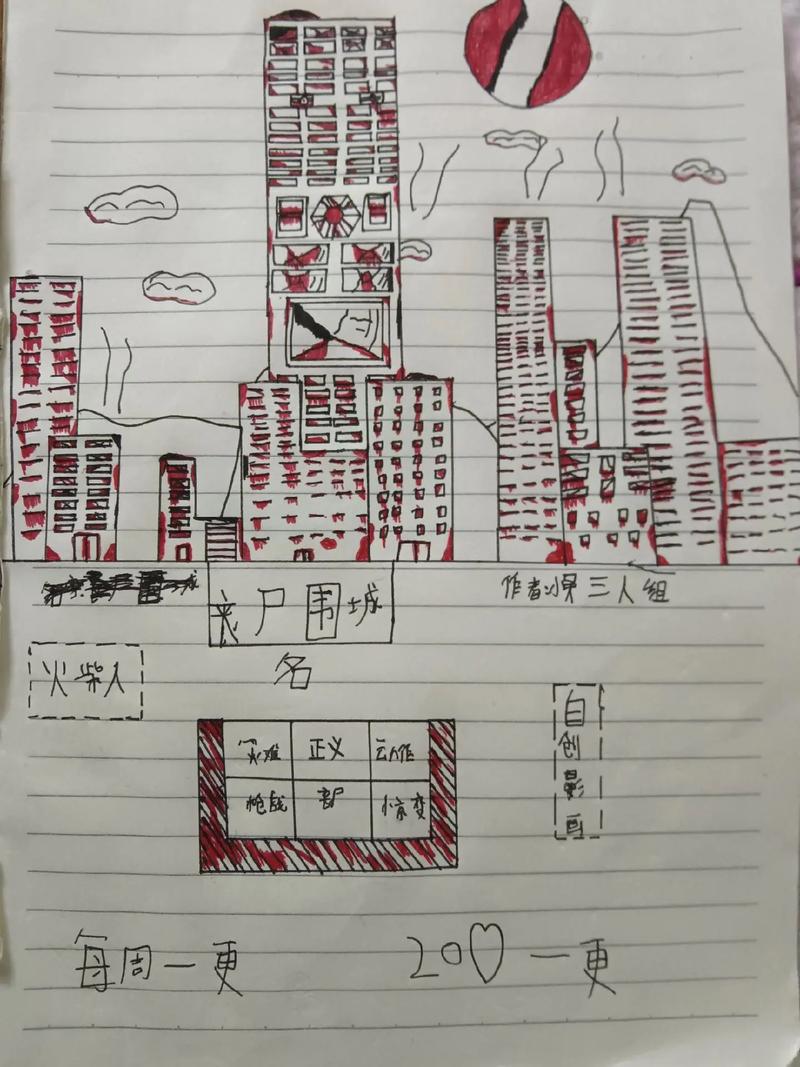 作者 三人组
丧尸围城
火柴人
名
自创影画
灾难 正义 动作
枪战 丧尸 惊变
每周一更
20♡一更